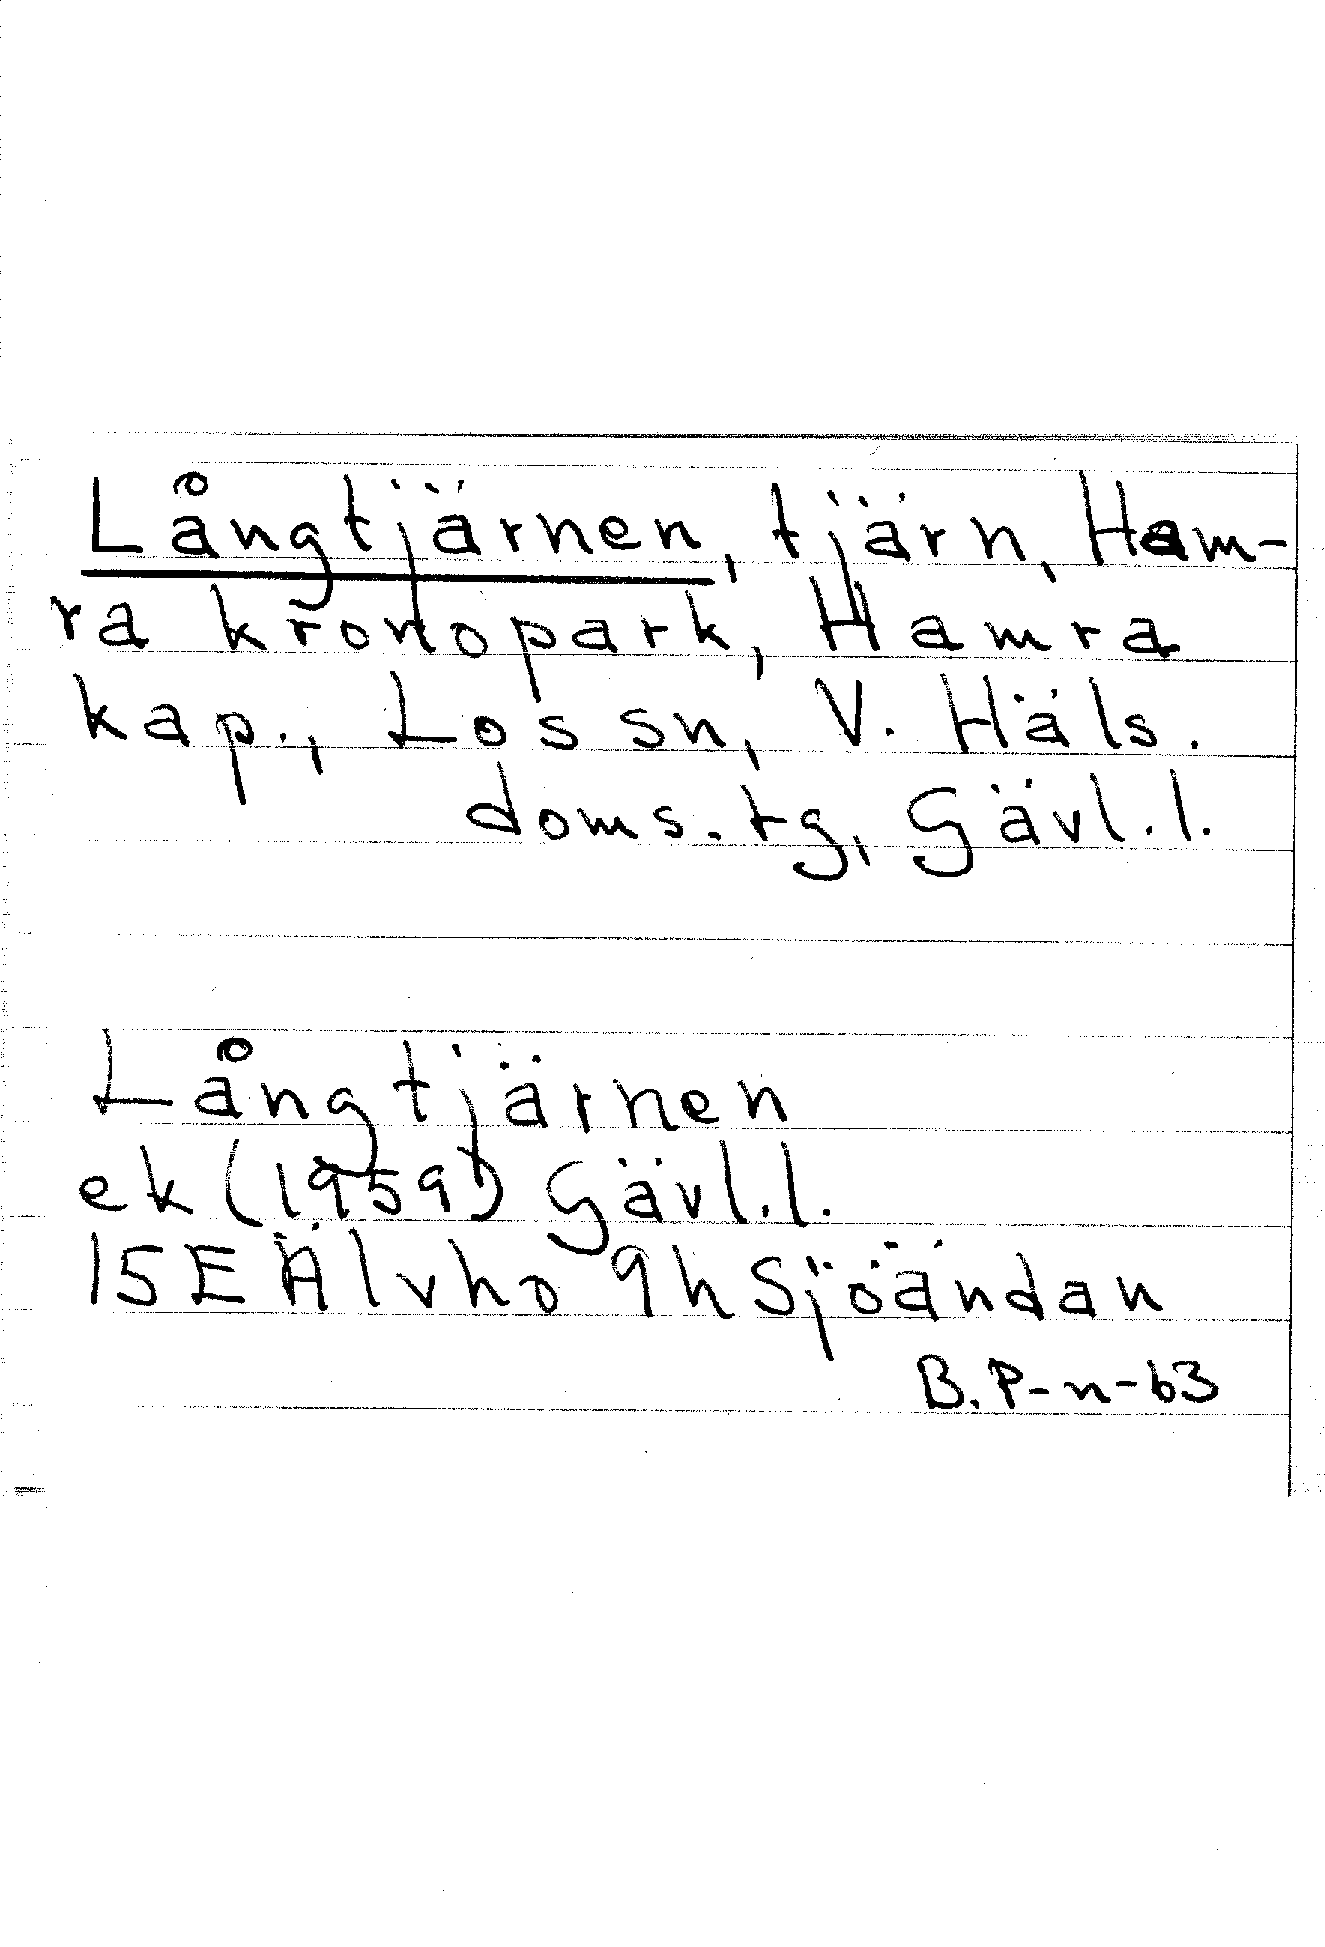 Långtjärnen, tjärn, Ham-
ra kronopark, Hamra
kap., Los sn, V. Häls.
doms. tg, Gävl.l.
Långtjärnen
ek (1959) Gävl.l.
15E Älvho 9h Sjöändan
B. P-n-63